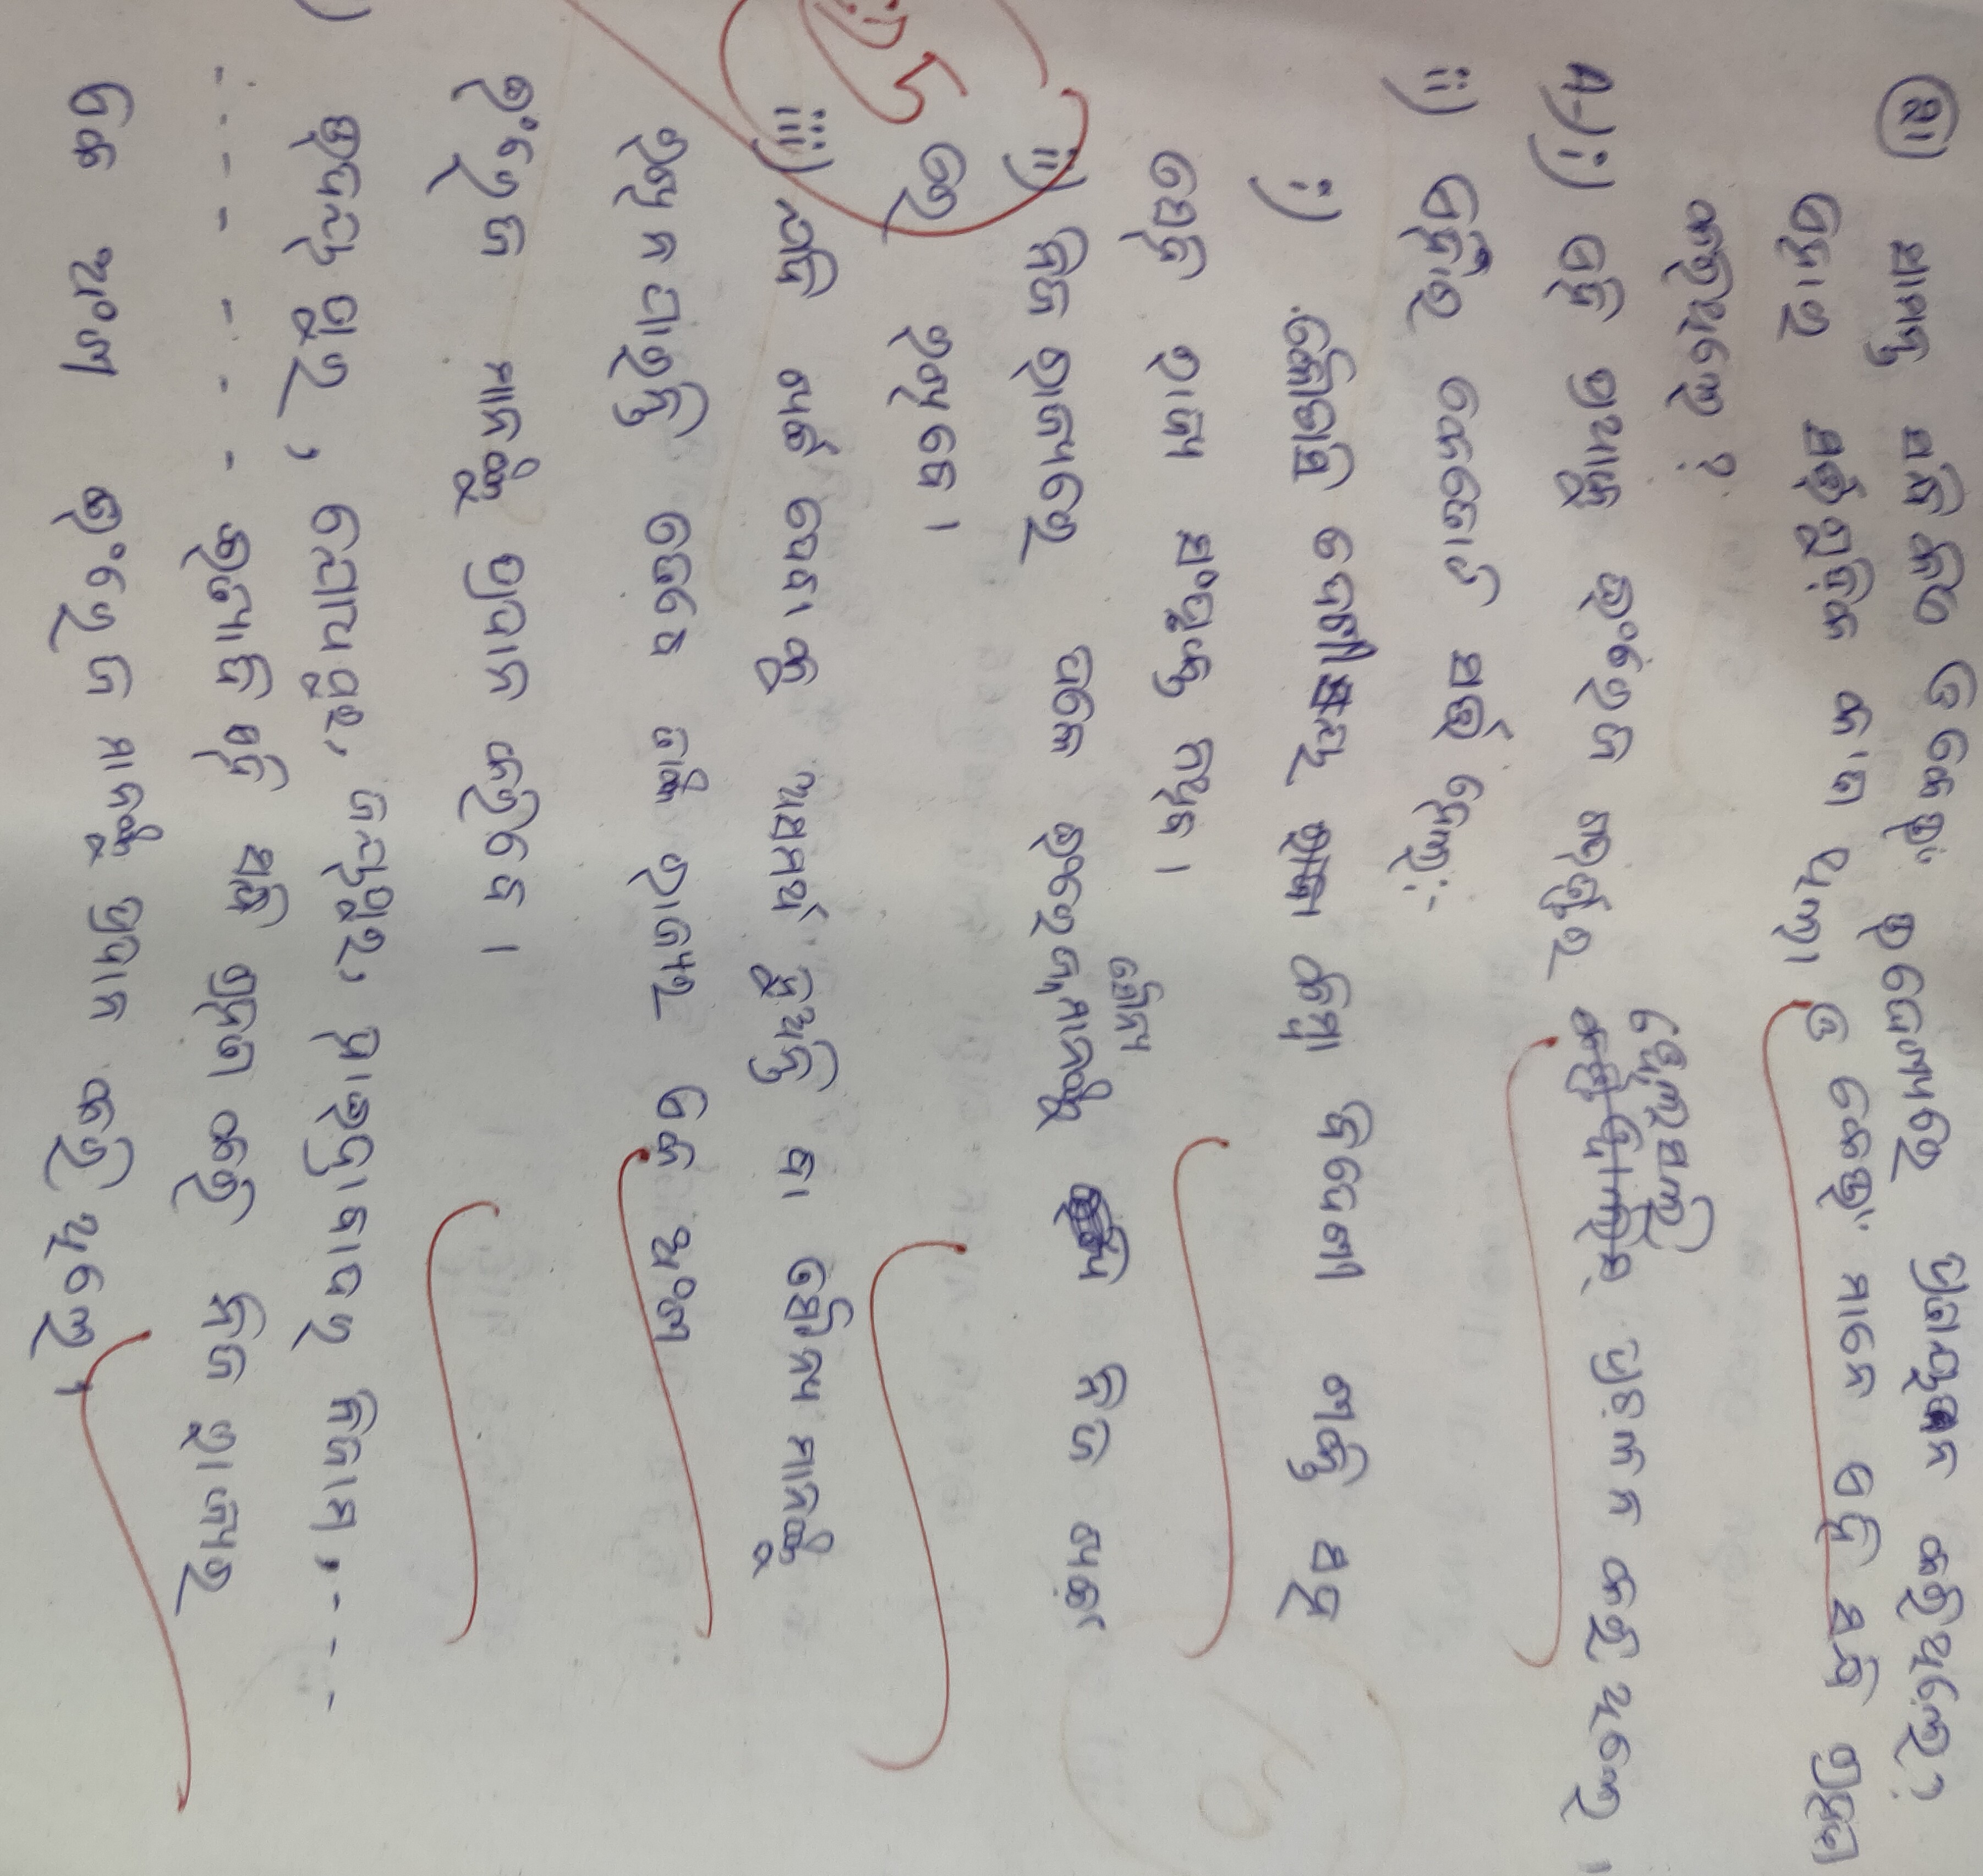 ୫। ସାମନ୍ତ ସନ୍ଧି କିଏ ଓ କେଉଁ ଉଦ୍ଦେଶ୍ୟରେ ପ୍ରଚଳନ କରିଥିଲେ?
ଏହାର ସର୍ତ୍ତଗୁଡ଼ିକ କ'ଣ ଥିଲା ଓ କେଉଁ ମାନେ ଏହି ସନ୍ଧି ଗ୍ରହଣ
କରିଥିଲେ ?
ୱେଲେସଲି
A-) i) ଏହି ପ୍ରଥାକୁ ଇଂରେଜ ଗଭର୍ଣ୍ଣର ପ୍ରଚଳନ କରିଥିଲେ ।
ii) ଏହାର କେତୋଟି ସର୍ତ୍ତ ହେଲା:-
i) କୌଣସି ଦେଶୀୟ ରାଜା କିମ୍ବା ବିଦେଶୀ ଶକ୍ତି ସହ
ସେହି ରାଜ୍ୟ ସଂପୃକ୍ତ ନଥିବ ।
ସୈନ୍ୟ
ii) ନିଜ ରାଜ୍ୟରେ ଦଳେ ଇଂରେଜ ମାନଙ୍କୁ ନିଜ ଖର୍ଚ୍ଚ
ରେ ରଖିବେ ।
5
iii) ଯଦି ଖର୍ଚ୍ଚ ଦେବାକୁ ଅସମର୍ଥ ହୁଅନ୍ତି ବା ସୈନ୍ୟ ମାନଙ୍କୁ
ରଖି ନ ପାରନ୍ତି ତେବେ ତାଙ୍କ ରାଜ୍ୟର ଏକ ଅଂଶ
ଇଂରେଜ ମାନଙ୍କୁ ପ୍ରଦାନ କରିବେ ।
) ଉଦୟପୁର, ଯୋଧପୁର, ଜୟପୁର, ହାଇଦ୍ରାବାଦର ନିଜାମ, - - -
- - - - - - - - ଇତ୍ୟାଦି ଏହି ସନ୍ଧି ଗ୍ରହଣ କରି ନିଜ ରାଜ୍ୟର
ଏକ ଅଂଶ ଇଂରେଜ ମାନଙ୍କୁ ପ୍ରଦାନ କରିଥିଲେ ।